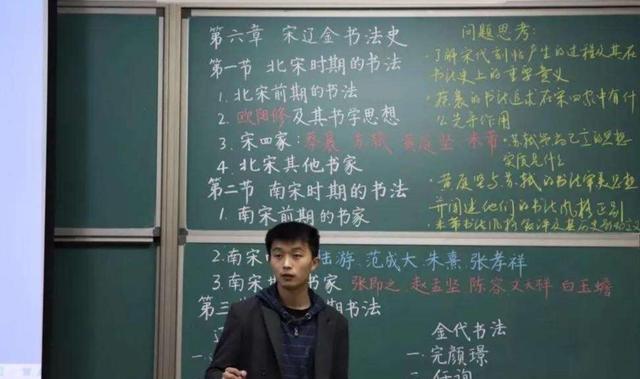 第六章 宋辽金书法史
第一节 北宋时期的书法
1. 北宋前期的书法
2. 欧阳修及其书学思想
3. 宋四家:蔡襄 苏轼 黄庭坚 米芾
4. 北宋其他书家
第二节 南宋时期的书法
1. 南宋前期的书家
2. 南宋 陆游 范成大 朱熹 张孝祥
3. 南宋 书家 张即之 赵孟坚 陈容 文天祥 白玉蟾
第三 时期的书法
辽
一、
二、
金代书法
一. 完颜璟
二. 任询
问题思考:
·了解宋代刻帖产生的过程及其在
书法史上的重要意义
·蔡襄的书法追求在宋四家中有什
么先导作用
·苏轼 的思想
实质是什么
·黄庭坚与苏轼的书法审美思想
并阐述他们的书法风格区别
·米芾书法风格 及其历史